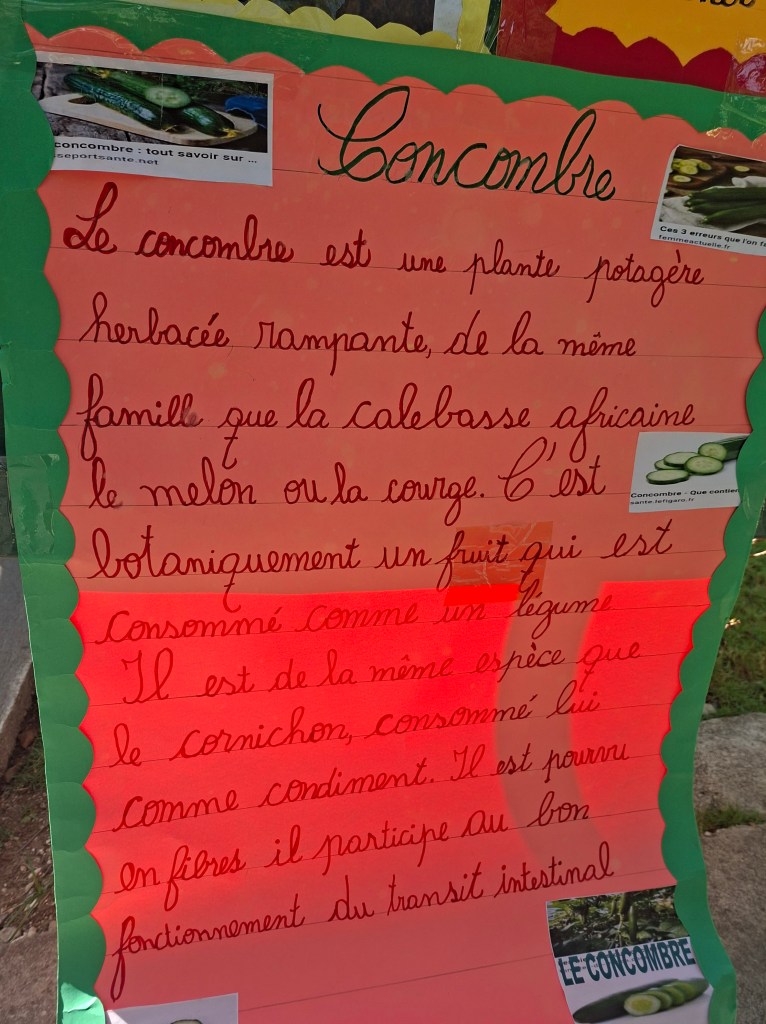 concombre : tout savoir sur ...
seportsante.net
Concombre
Ces 3 erreurs que l'on fa
femmeactuelle.fr
Le concombre est une plante potagère
herbacée rampante, de la même
famille que la calebasse africaine
le melon ou la courge. C'est
Concombre - Que contien
sante.lefigaro.fr
botaniquement un fruit qui est
consommé comme un légume
Il est de la même espèce que
le cornichon, consommé lui
comme condiment. Il est pourvu
en fibres il participe au bon
fonctionnement du transit intestinal
LE CONCOMBRE